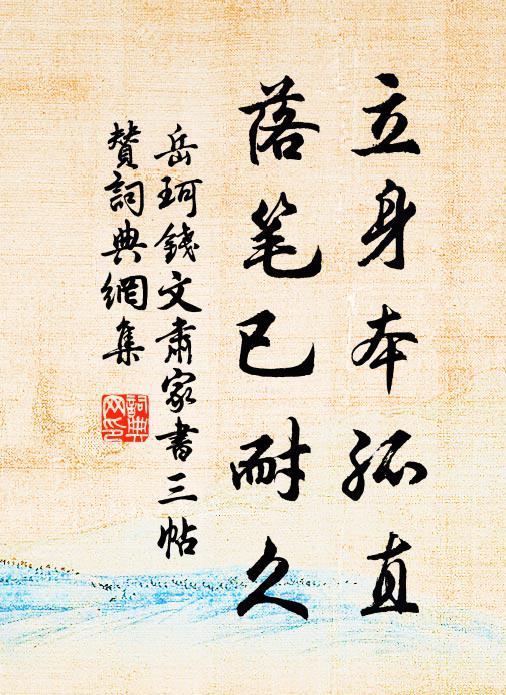 立身本孤直
落笔已耐久
岳珂錢文肅家書三帖
贊詞典網集
詞典网印